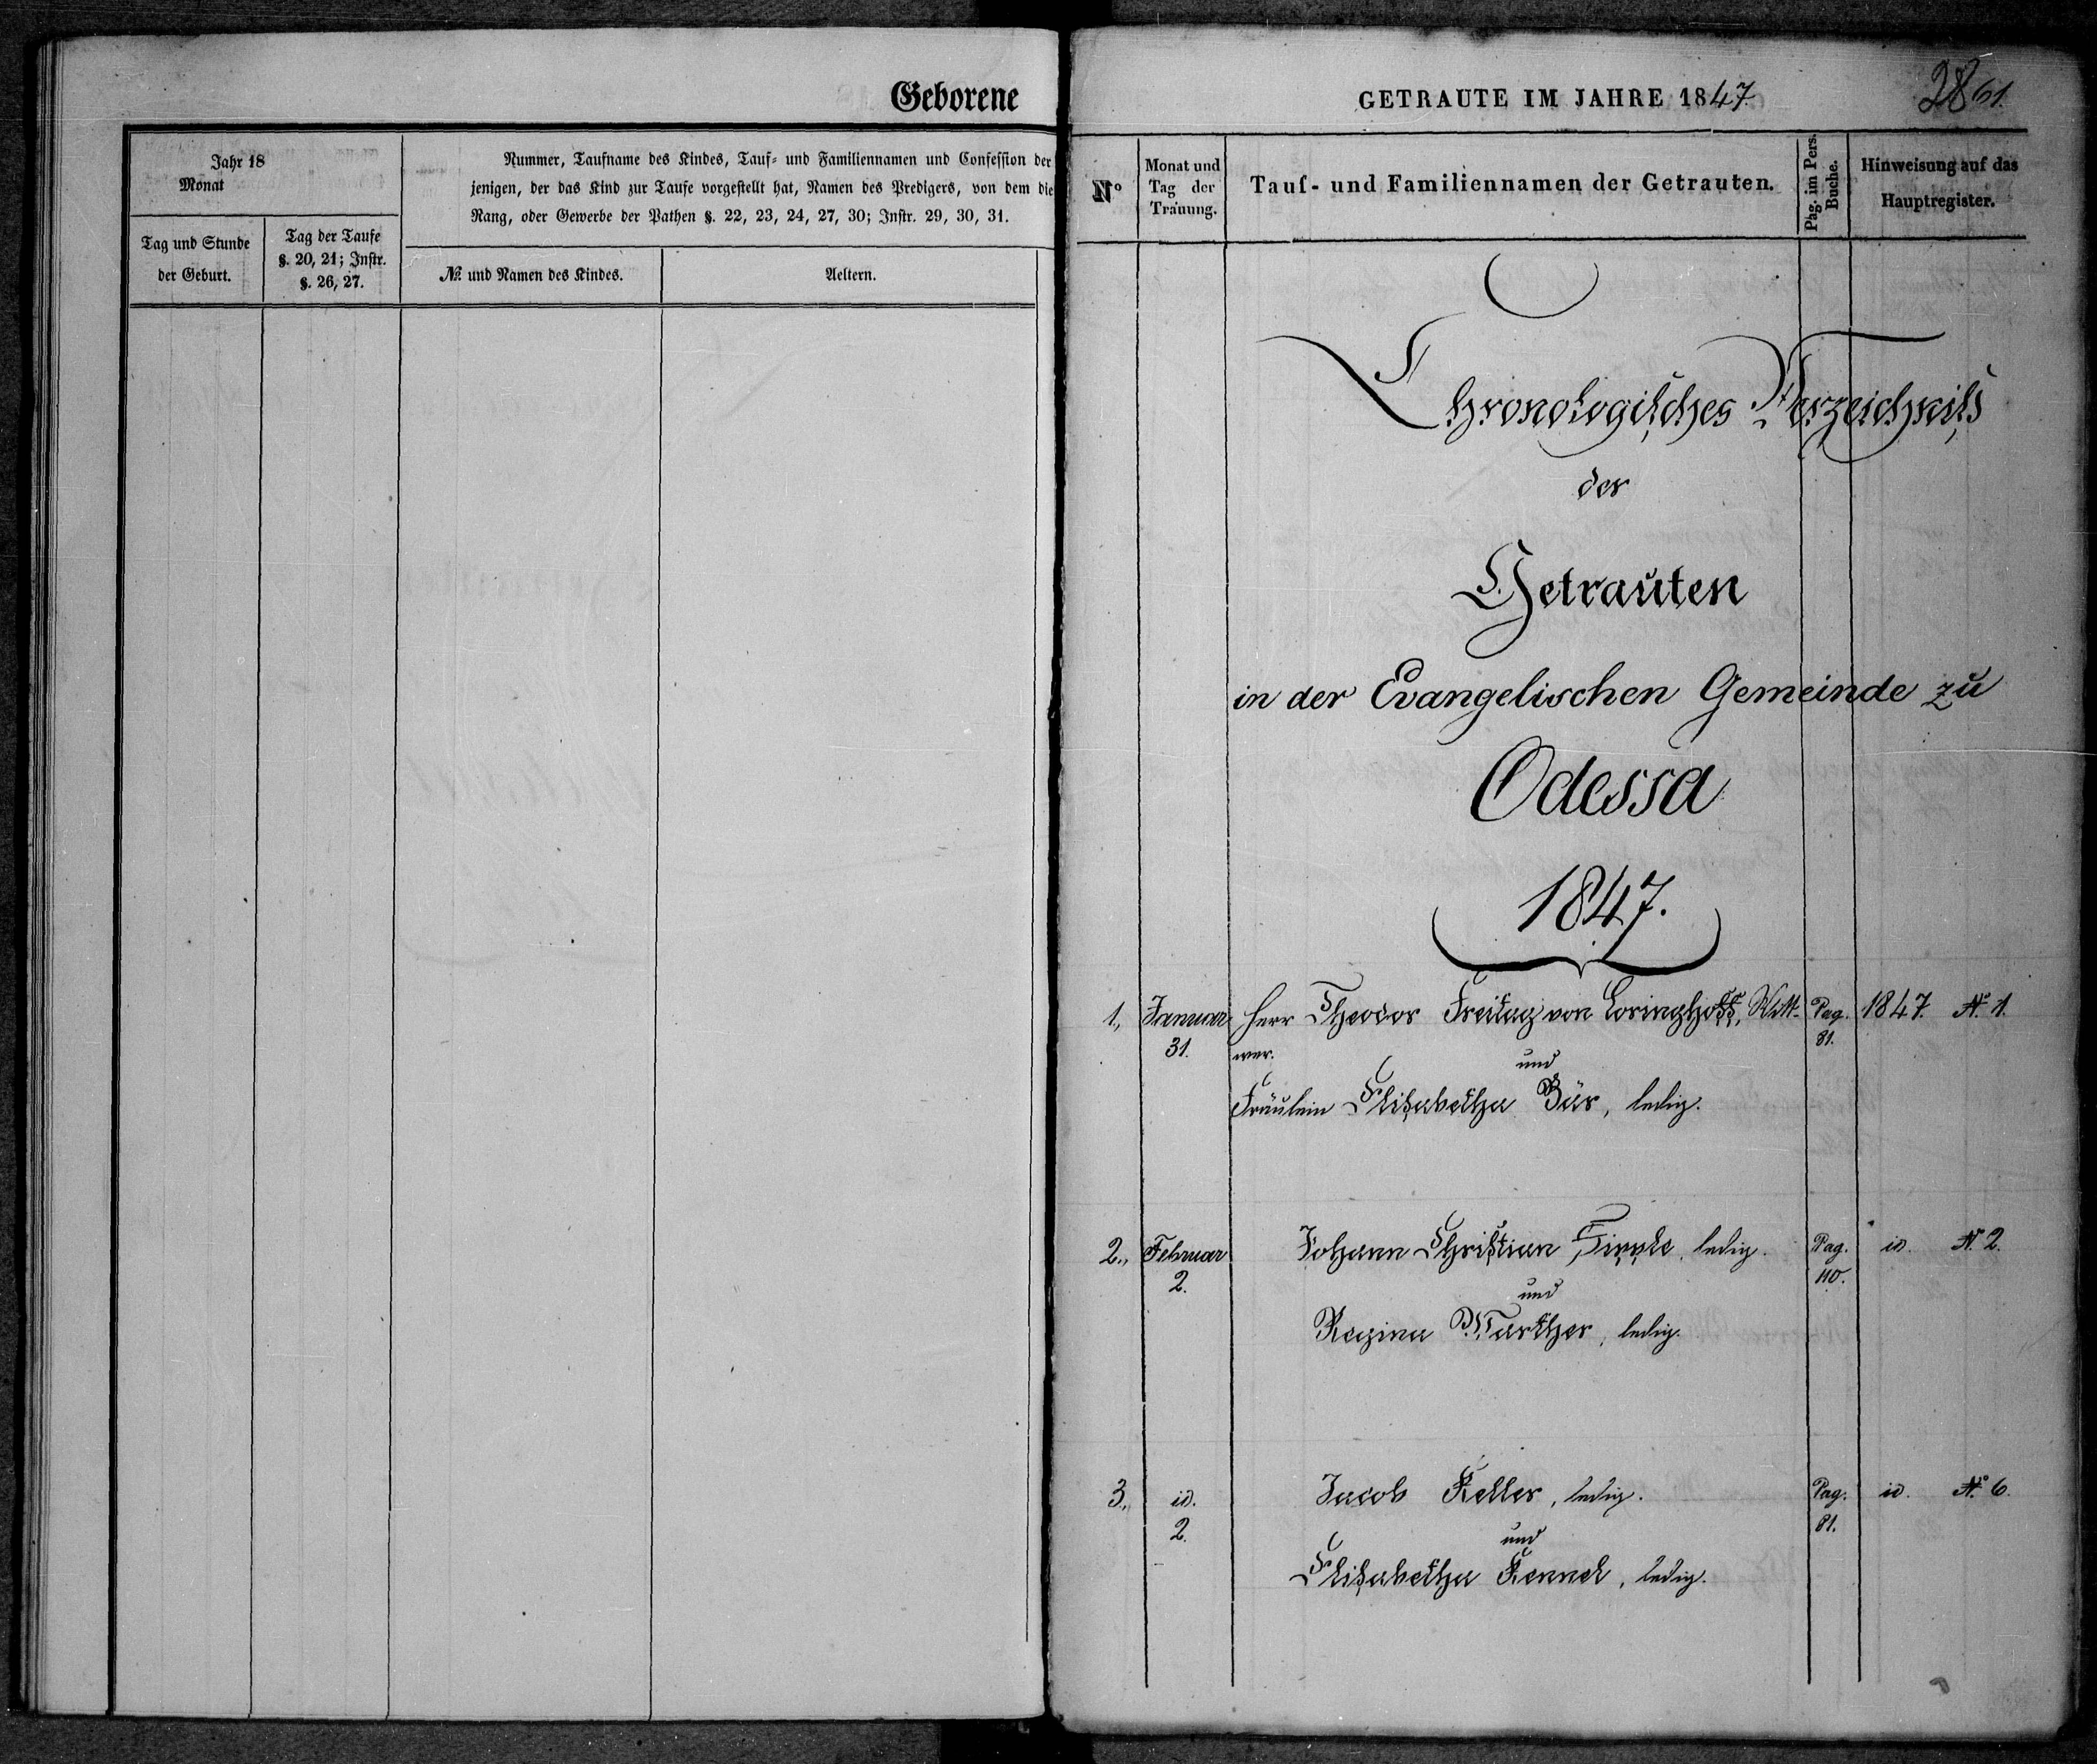 Geborene
Jahr 18
Monat
Nummer, Taufname des Kindes, Tauf- und Familiennamen und Confession der
jenigen, der das Kind zur Taufe vorgestellt hat, Namen des Predigers, von dem die
Rang, oder Gewerbe der Pathen §. 22, 23, 24, 27, 30; Instr. 29, 30, 31.
Tag und Stunde
der Geburt.
Tag der Taufe
§. 20, 21; Instr.
§. 26, 27.
№ und Namen des Kindes.
Aeltern.
GETRAUTE IM JAHRE 1847
2861.
N°
Monat und
Tag der
Trauung.
Tauf- und Familiennamen der Getrauten.
Pag. im Pers.
Buche.
Hinweisung auf das
Hauptregister.
Chronologisches Verzeichniss
der
Getrauten
in der Evangelischen Gemeinde zu
Odessa
1847.
1., Januar Herr Theodor Freitag von Loringhoff, Witt- Pag. 1847. N° 1.
31. wer. 81.
und
Fräulein Elisabetha Bär, ledig.
2., Februar Johann Christian Zipple, ledig. Pag. id. N. 2.
2. 110.
und
Regina Warther, ledig.
3., id. Jacob Keller, ledig. Pag. id. N° 6.
2. 81.
und
Elisabetha Kennel, ledig.